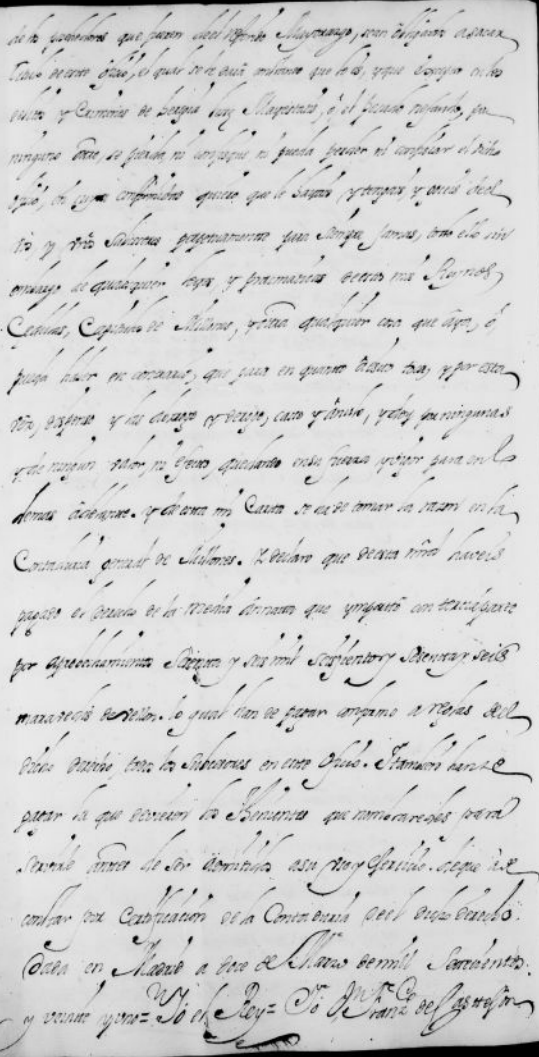 de los posehedores que fueren de el dho Mayorazgo, sean obligados a sacar
Titulo de este ofizio, el qual se le dará constando que lo es, y que aunque en los
delitos y Crimenes de heregia lesæ Magestatis, ó el Pecado nefando, por
ninguno otro, se pierda, ni confisque ni pueda perder ni confiscar el dicho
ofizio, en cuya conformidad quiero que le hayais y tengais, y goceis de el
Vos y vros subcesores perpetuamente para siempre jamas, todo ello sin
embargo de qualesquier leyes y pracmaticas de estos mis Reynos,
Cedulas, Capitulos de Millones, y otra qualquier cosa que aya, ó
pueda haver en contrario, que para en quanto á esto toca, y por esta
vez, dispenso y las abrogo y derogo, casso y anulo, y doy por ningunas
y de ningun valor, ni efecto, quedando en su fuerza y vigor para en lo
demas adelante. Y de esta mi Carta se ha de tomar la razon en la
Contaduria general de Millones. Y declaro que de esta mrd haveis
pagado el derecho de la media annata que importó con tercia parte
por aprovechamientos Setenta y seis mil Seiscientos y Sesenta y seis
maravedis de vellon. lo qual han de pagar conforme a reglas de el
dicho derecho, todos los subcesores en este Ofizio. I tambien han de
pagar la que devieren los Thenientes que nombraredes para
servirle antes de ser admitidos a su uso y exercicio. de que ha de
constar por Certificacion de la Contaduria de el dicho derecho.
Dada en Madrid a doce de Marzo de mill Setecientos
y veinte y uno = Yo el Rey = Yo Dn Franco de Castejon